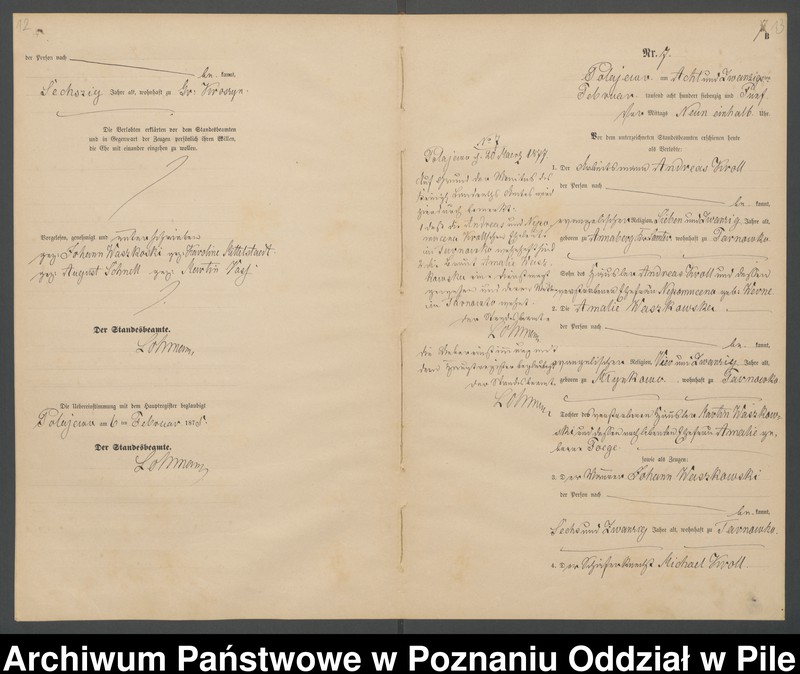 12
der Person nach
be kannt,
Sechszig Jahre alt, wohnhaft zu Gr. Krosyn.
Die Verlobten erklärten vor dem Standesbeamten
und in Gegenwart der Zeugen persönlich ihren Willen,
die Ehe mit einander eingehen zu wollen.
Vorgelesen, genehmigt und unterschrieben
gez. Johann Waszkoski gez. Karoline Mittelstaedt
gez. August Schnell gez. Martin
Der Standesbeamte.
Lohmann
Die Uebereinstimmung mit dem Hauptregister beglaubigt
Polajewo am 6 ten Februar 1875.
Der Standesbeamte.
Lohmann
13
B
Nr. 7.
Polajewo am Acht und Zwanzigsten
Februar tausend acht hundert siebenzig und Fünf
Vor Mittags Neun einhalb Uhr
Vor dem unterzeichneten Standesbeamten erschienen heute
als Verlobte:
1. Der Andreas Kroll
der Person nach
be kannt,
evangelischer Religion, Sieben und Zwanzig Jahre alt,
geboren zu Annaberg wohnhaft zu Tarnowko
Sohn des Häusler Andreas Kroll und dessen
verstorbenen Ehefrau Nepomucena geb.
2. Die Amalie Waszkowska
der Person nach
be kannt,
evangelischer Religion, Vier und Zwanzig Jahre alt,
geboren zu Mlynkowo, wohnhaft zu Tarnowko
Tochter des verstorbenen Häusler Martin Waszkow-
ski und dessen noch lebenden Ehefrau Amalie ge-
borene
sowie als Zeugen:
3. Der Johann Waszkowski
der Person nach
be kannt,
Sechs und Zwanzig Jahre alt, wohnhaft zu Tarnowko.
4. Der Schäferknecht Michael Kroll
No 7
Polajewo d. 10 Maerz 1877
Auf Grund der Monitus des
Königl. Landraths Amtes wird
hierdurch bemerkt:
1. daß die Andreas und Nepo-
mucena Krollschen Eheleute
in Tarnowko wohnhaft sind
2. die Braut Amalie Wasz-
kowska
in Tarnowko wohnt.
der Standesbeamte
Lohmann
die Uebereinstimmung mit
dem Hauptregister beglaubigt
der Standesbeamte.
Lohmann
Archiwum Państwowe w Poznaniu Oddział w Pile